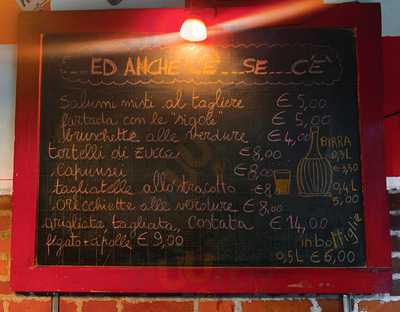 ED ANCHE C'È ... SE ... C'È
Salumi misti al tagliere € 5,00
fartada con le "sigole" € 5,00
bruschette alle verdure € 4,00
tortelli di zucca € 8,00
capunsei € 8,00
tagliatelle allo stracotto €8
orecchiette alle verdure € 8,00
grigliata, tagliata, costata € 14,00
fegato + cipolle € 9,00
BIRRA
0,2L
€ 3,50
0,4L
5,00
in bottiglie
0,5L € 6,00